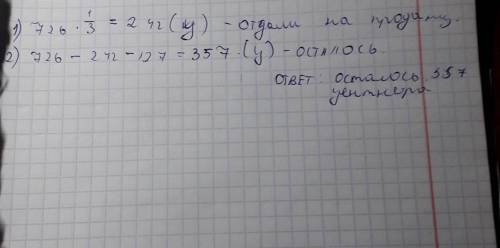 1) 726 · 1/3 = 242 (ц) - отдали на продажу.
2) 726 - 242 - 127 = 357 (ц) - осталось.
ОТВЕТ: осталось 357
центнера